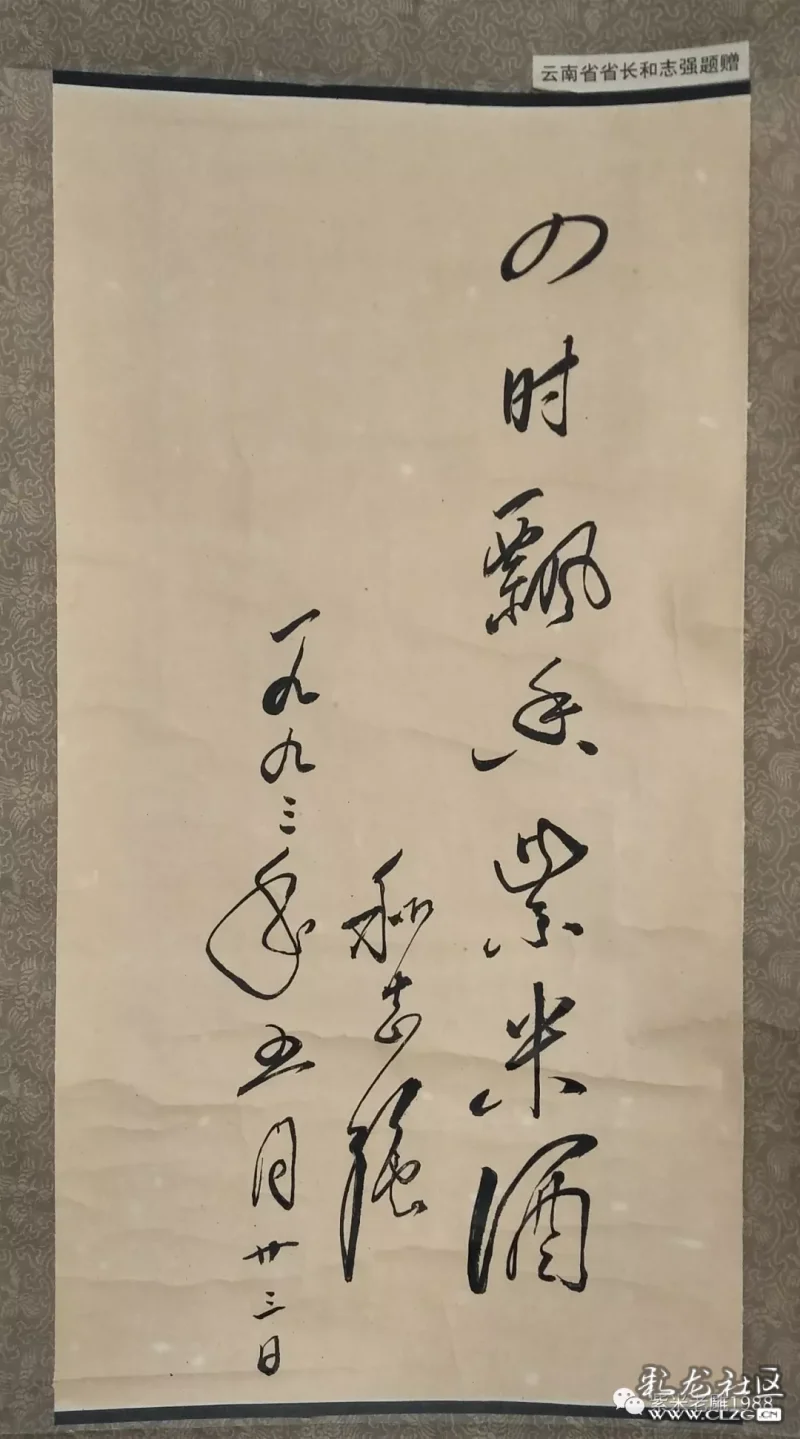 云南省省长和志强题赠
四时飘香紫米酒
和志强
一九九三年五月廿三日
彩龙社区
紫米老雕1988
WWW.CLZG.CN